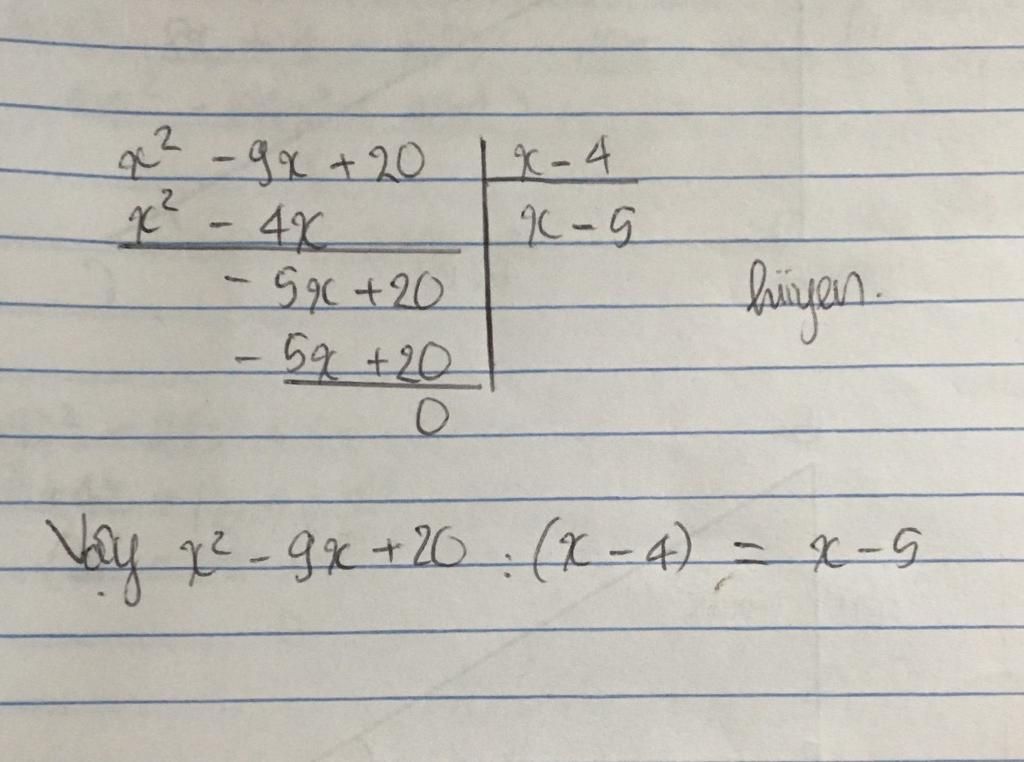 x² - 9x + 20 | x - 4
x² - 4x | x - 5
- 5x + 20
- 5x + 20
0
Vậy x² - 9x + 20 : (x - 4) = x - 5